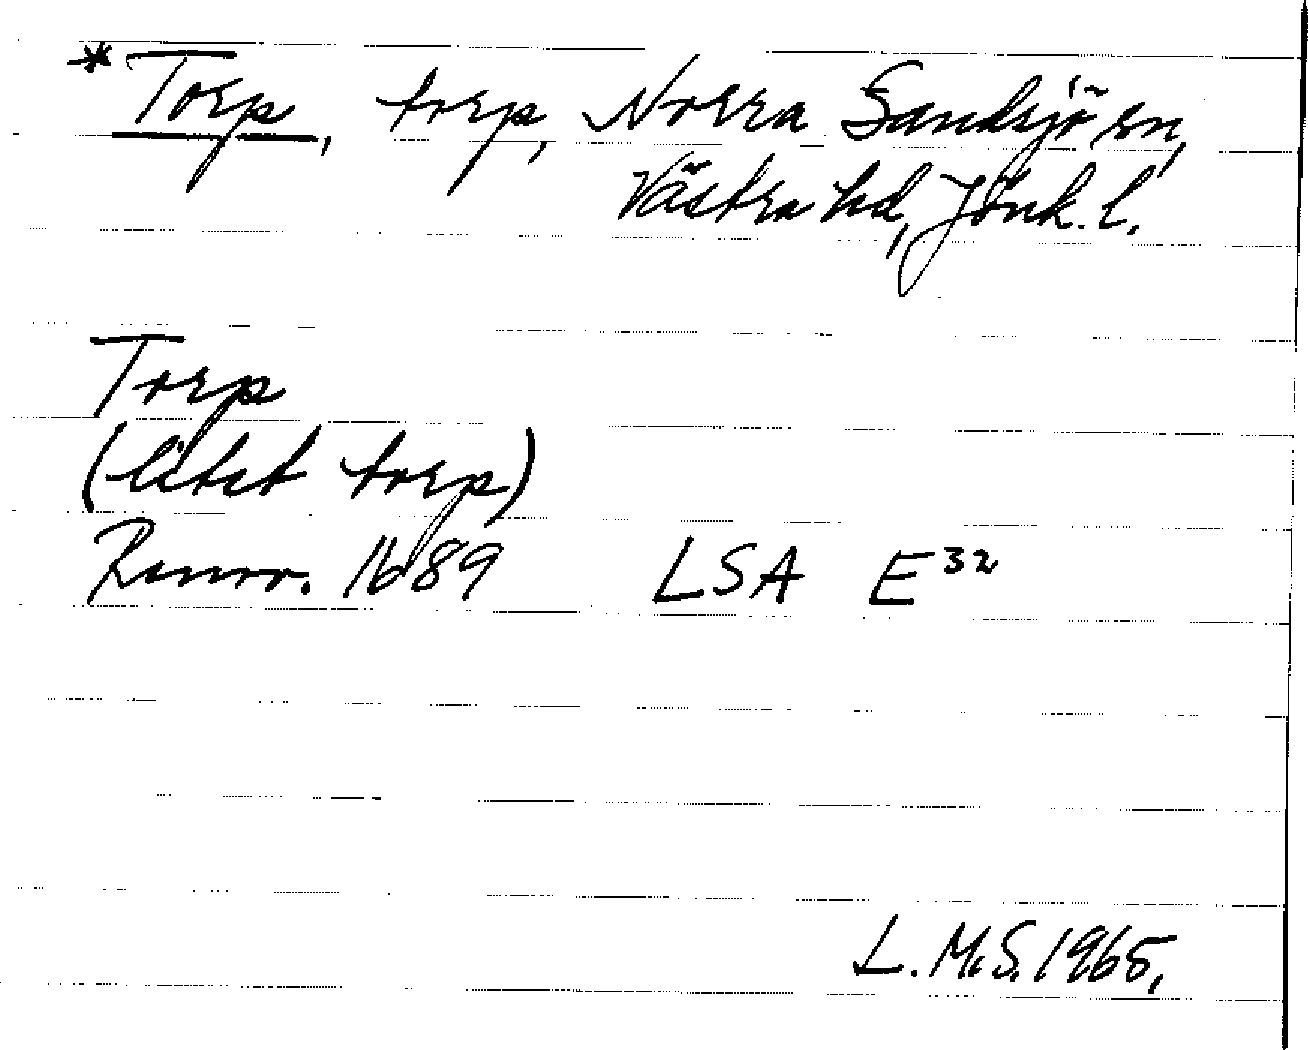 * Torp, torp, Norra Sandsjö sn,
Västra hd, Jönk. l.
Torp
(litet torp)
Rannr. 1689 LSA E32
L.M.S. 1965.